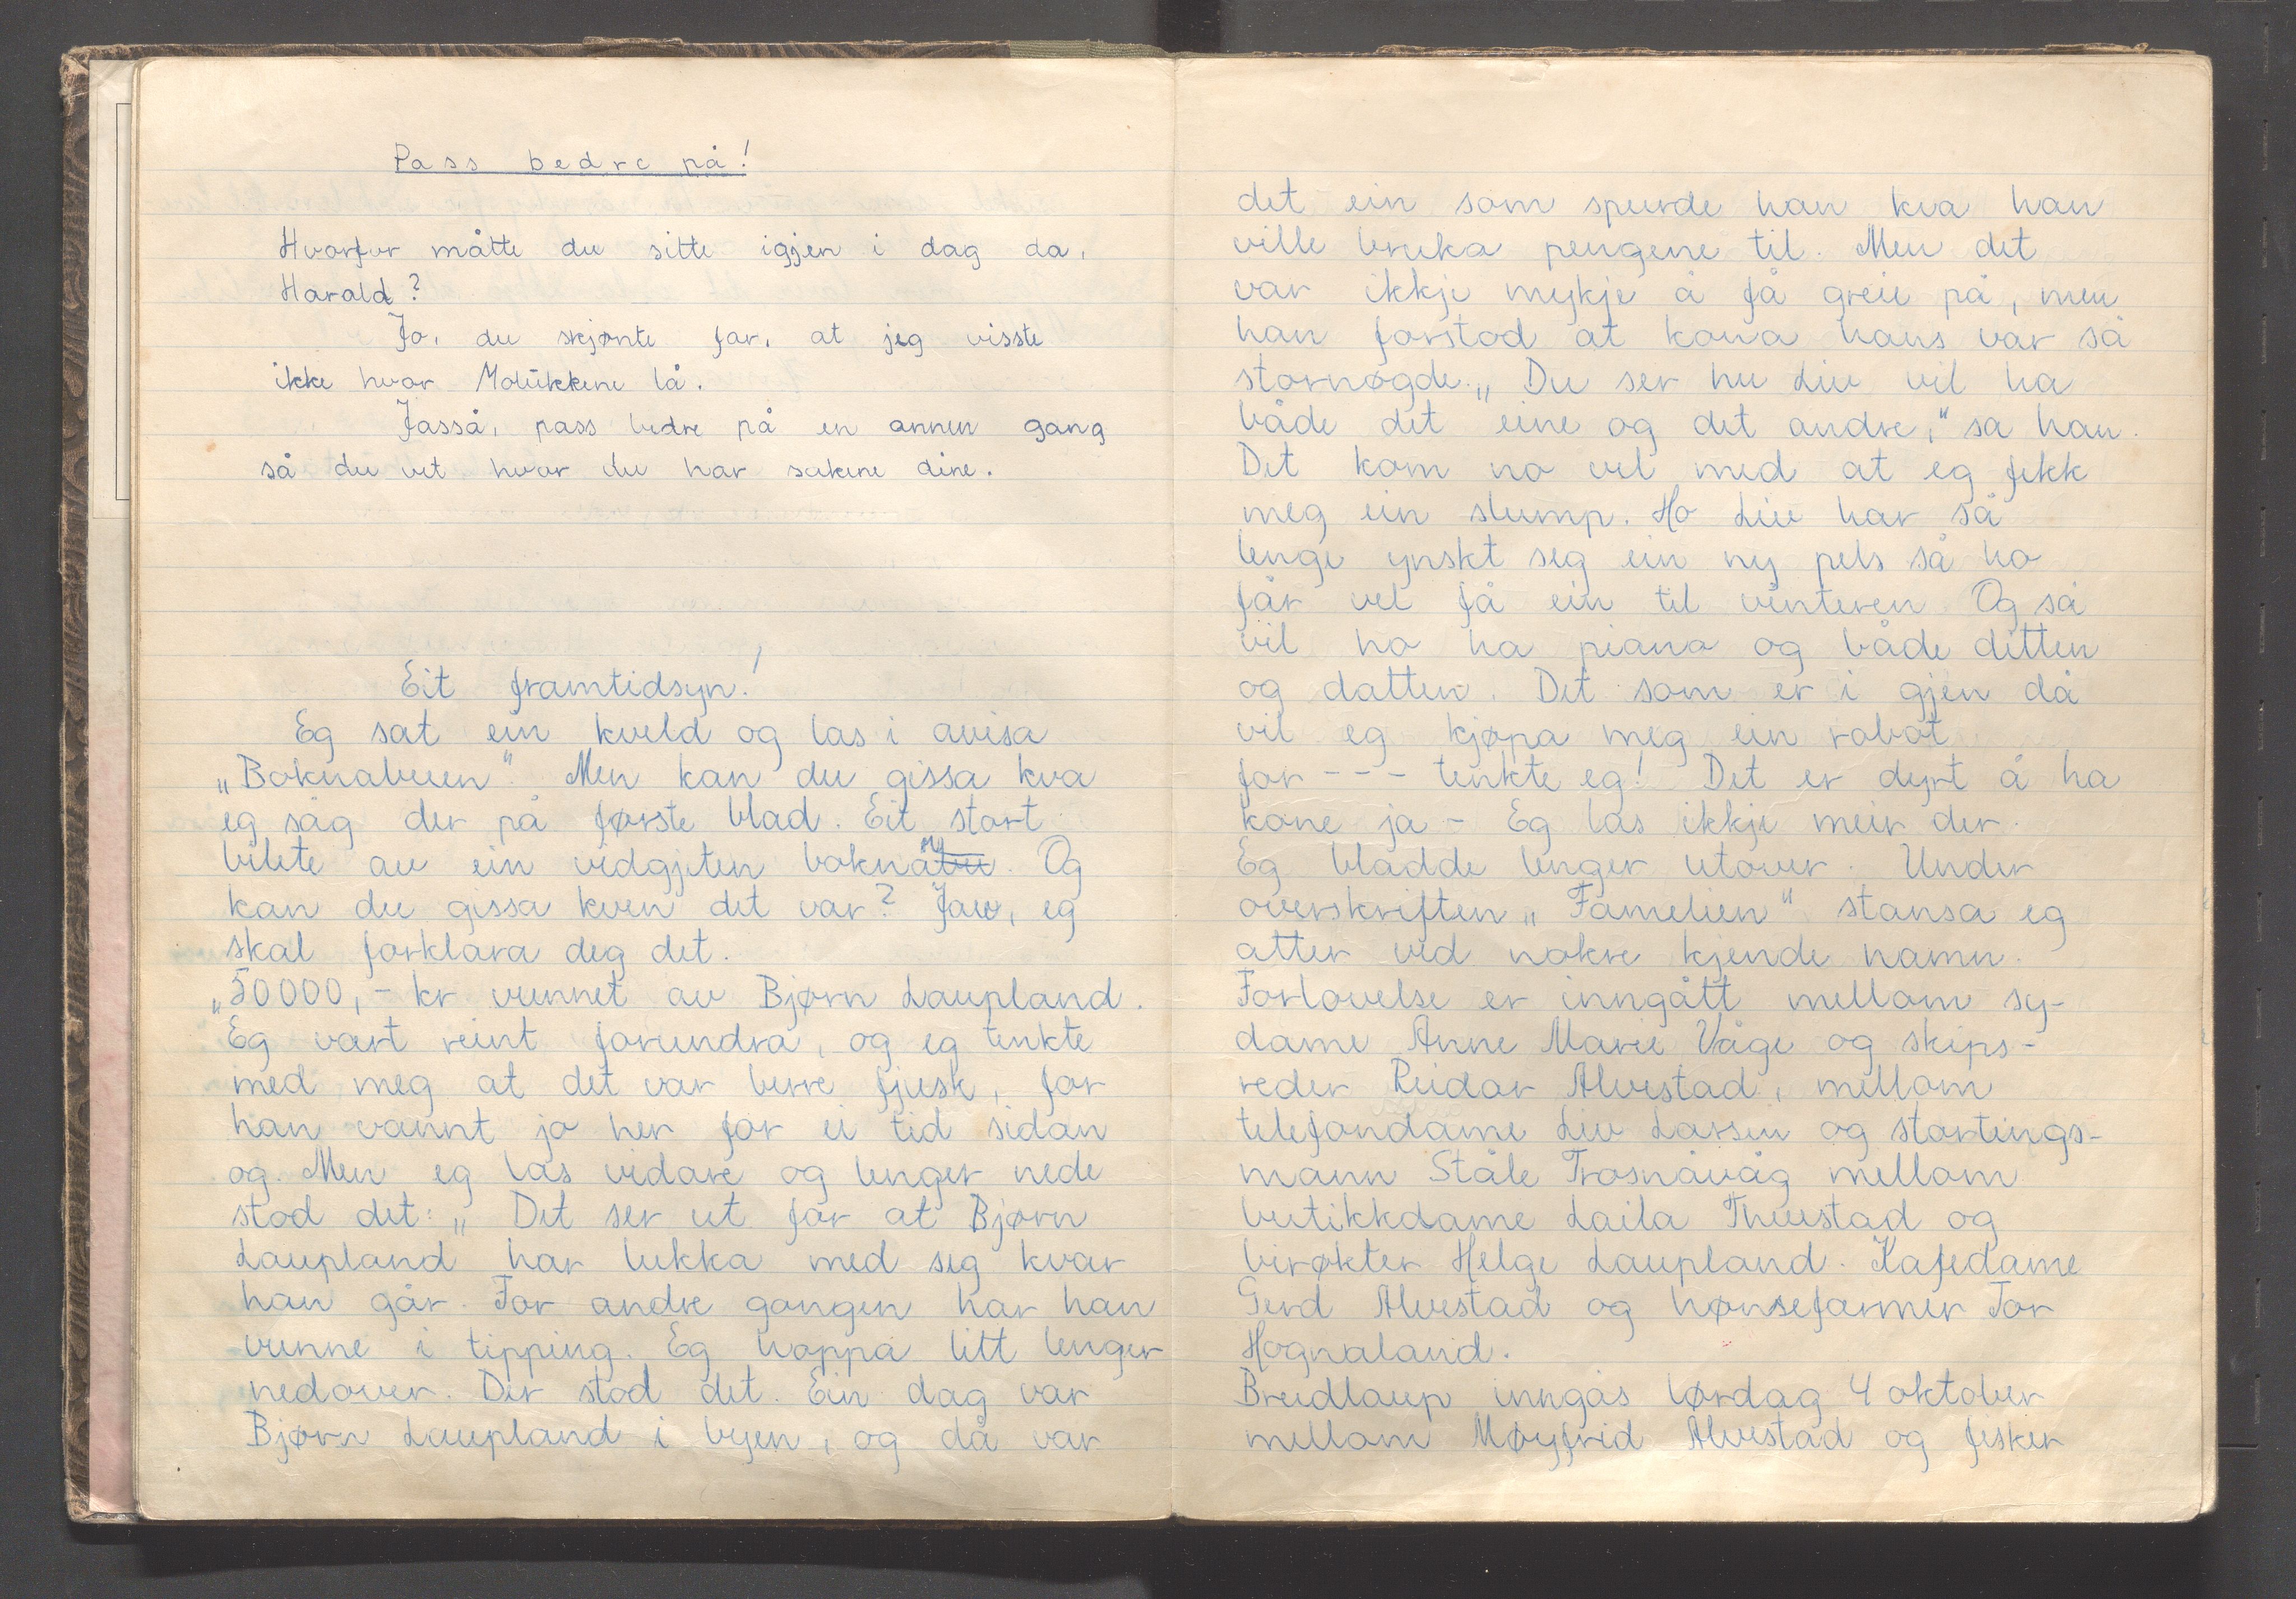 Pass bedre på!
Hvorfor måtte du sitte igjen i dag da,
Harald?
Jo, du skjønte far, at jeg visste
ikke hvor Molukkene lå.
Jasså, pass bedre på en annen gang
så du vet hvor du har sakene dine.
Eit framtidsyn!
Eg sat ein kveld og las i avisa
„Boknabuen". Men kan du gissa kva
eg såg der på første blad. Eit stort
bilete av ein vidgjeten bokna. Og
kan du gissa kven det var? Jau, eg
skal forklara deg det.
„50000,- kr vunnet av Bjørn Laupland.
Eg vart reint forundra, og eg tenkte
med meg at det var berre fjusk, for
han vannt jo her for ei tid sidan
og. Men eg las vidare og lenger nede
stod det: „ Det ser ut for at Bjørn
Laupland har lukka med seg kvar
han går. For andre gongen har han
vunne i tipping. Eg hoppa litt lenger
nedover. Der stod det. Ein dag var
Bjørn Laupland i byen, og då var
det ein som spurde han kva han
ville bruka pengene til. Men det
var ikkje mykje å få greie på, men
han forstod at kona hans var så
stornøgde. „ Du ser hu Liv vil ha
både det eine og det andre," sa han.
Det kom no vel med at eg fekk
meg ein slump. Ho Liv har så
lenge ynskt seg ein ny pels så ho
får vel få ein til vinteren. Og så
vil ho ha piano og både ditten
og datten. Det som er i gjen då
vil eg kjøpa meg ein robot
for - - - tenkte eg! Det er dyrt å ha
kone ja - Eg las ikkje meir der.
Eg bladde lenger utover. Under
overskriften „ Famelien" stansa eg
atter ved nokre kjende namn.
Forlovelse er inngått mellom sy-
dame Anne Marie Våge og skips-
reder Reidar Alvestad, mellom
telefondame Liv Larsen og stortings-
mann Ståle Trosnåvåg mellom
butikkdame Laila Thuestad og
birøkter Helge Laupland. Kafedame
Gerd Alvestad og hønsefarmer Tor
Hognaland.
Breidlaup inngås lørdag 4 oktober
mellom Møyfrid Alvestad og fisker